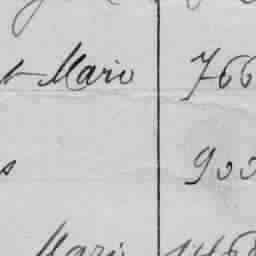 t Mario 766
s 900
Mario 1468